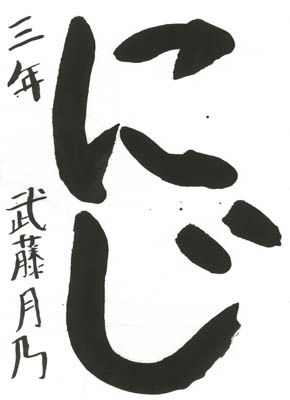 にじ
三年 武藤月乃